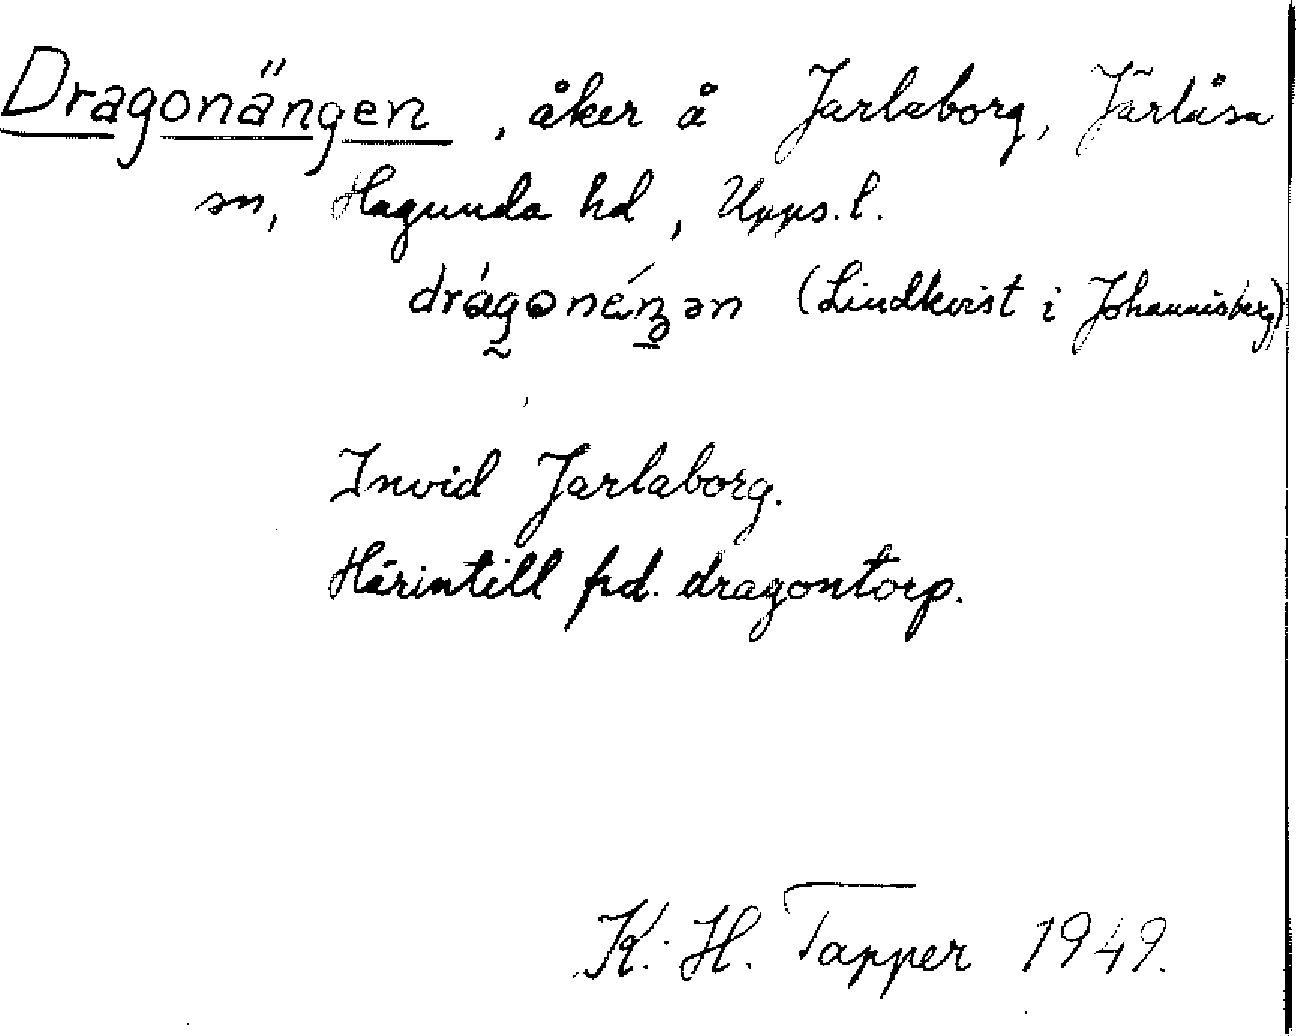 Dragonängen, åker å Jarlaborg, Järlåsa
sn, Hagunda hd, Upps. l.
drágonéŋən (Lindkvist i Johannisberg)
Invid Jarlaborg.
Härintill frd. dragontorp.
K. H. Tapper 1949.